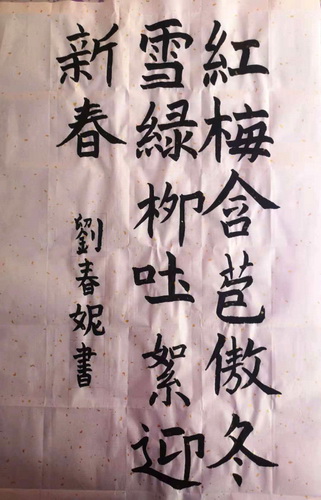 紅梅含苞傲冬
雪緑柳吐絮迎
新春
劉春妮書